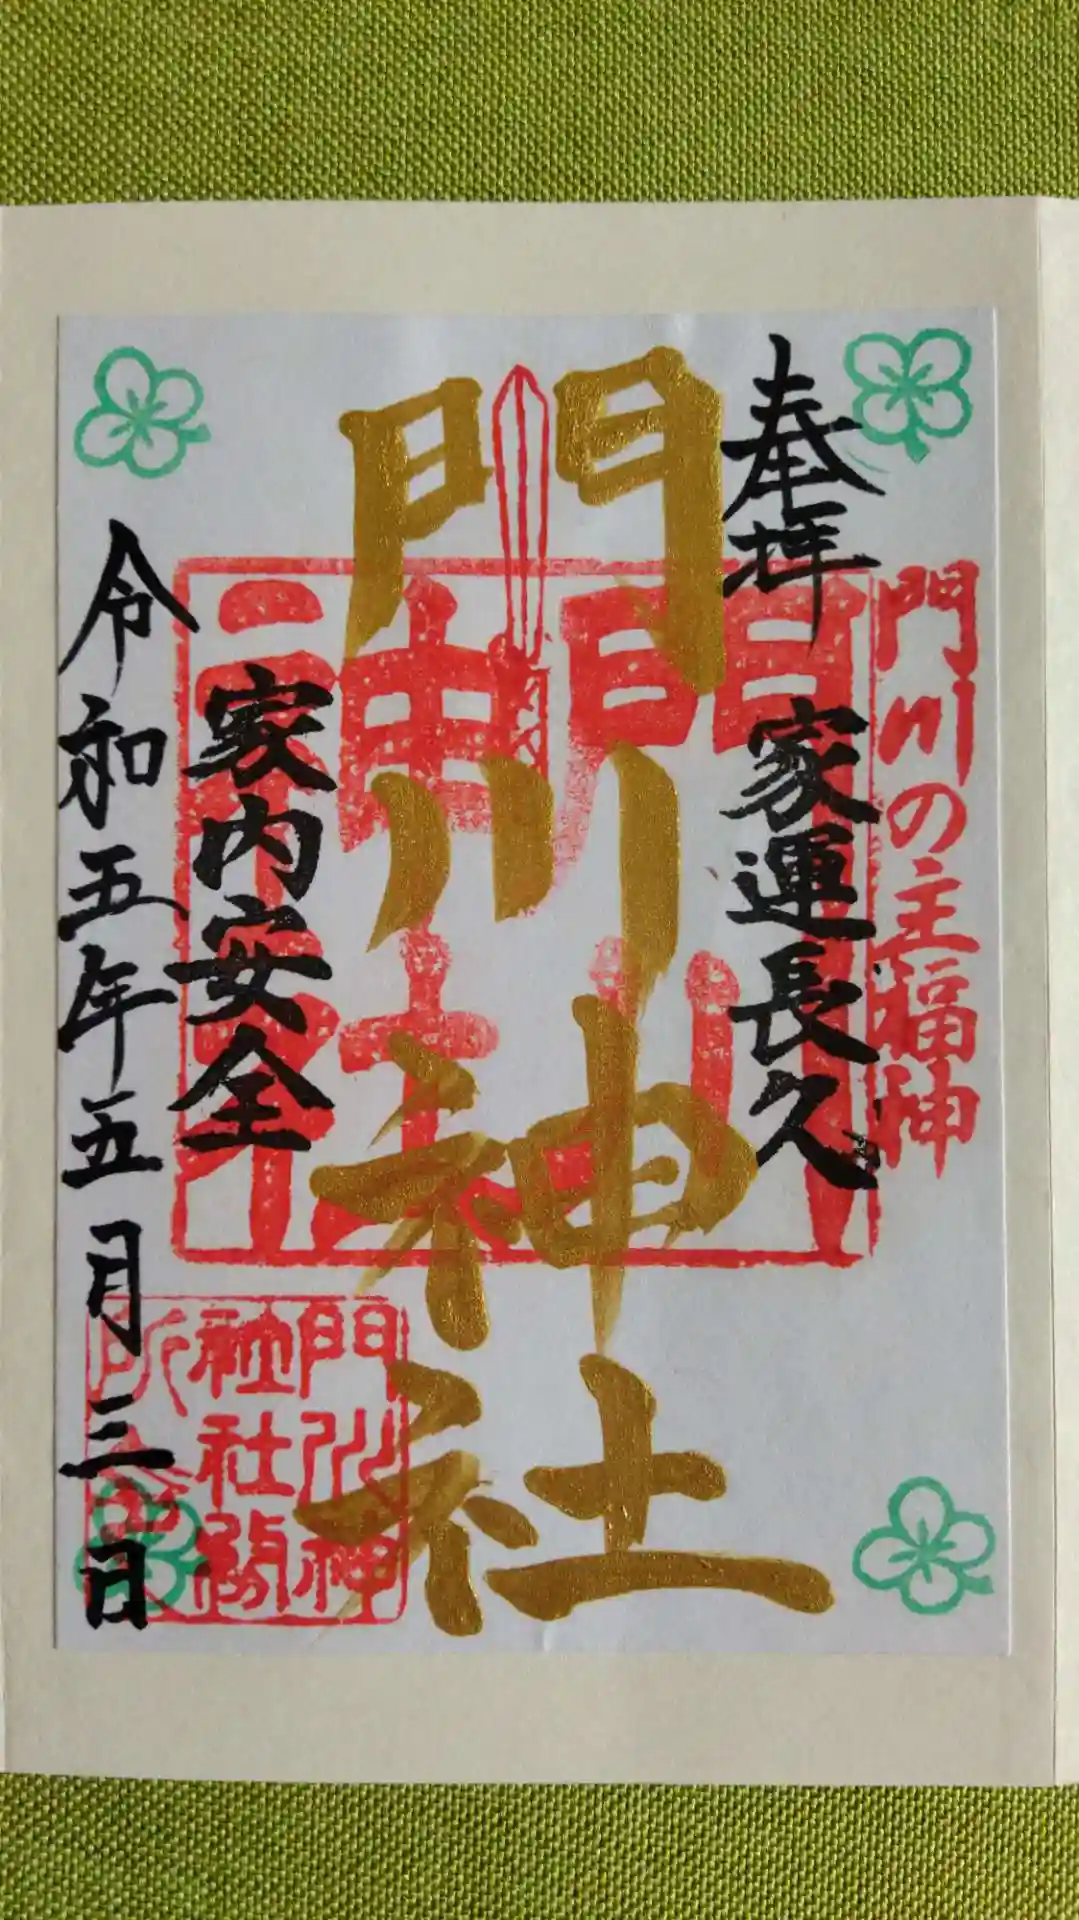 門川の主福神
奉拝 家運長久
門川神社
家内安全
令和五年五月三日
門川神社
門川神
社社務
所